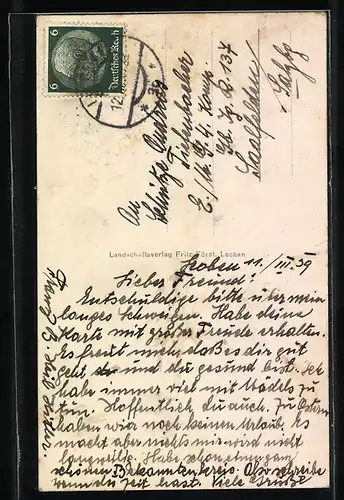 6 Deutsches Reich 6
12.
An
Schütze
Tiefenbacher
E./ 4. Komp.
Gd. Jg. R. 137
Saalfelden
Salzb.
Landschaftsverlag Fritz Fürst, Leoben
Leoben 11./III.39
Lieber Freund!
Entschuldige bitte über mein
langes Schweigen. Habe deine
Karte mit großer Freude erhalten.
Es freut mich daß es dir gut
geht und du gesund bist. Ich
habe immer viel mit Mädels zu
tun. Hoffentlich du auch. Zu Ostern
haben wir noch keinen Urlaub. Es
macht aber nichts mir wird nicht
langweilig. Habe schon einen ganz
schönen Bekanntenkreis. Also schreibe
wenn du Zeit hast. Viele Grüße
Franz